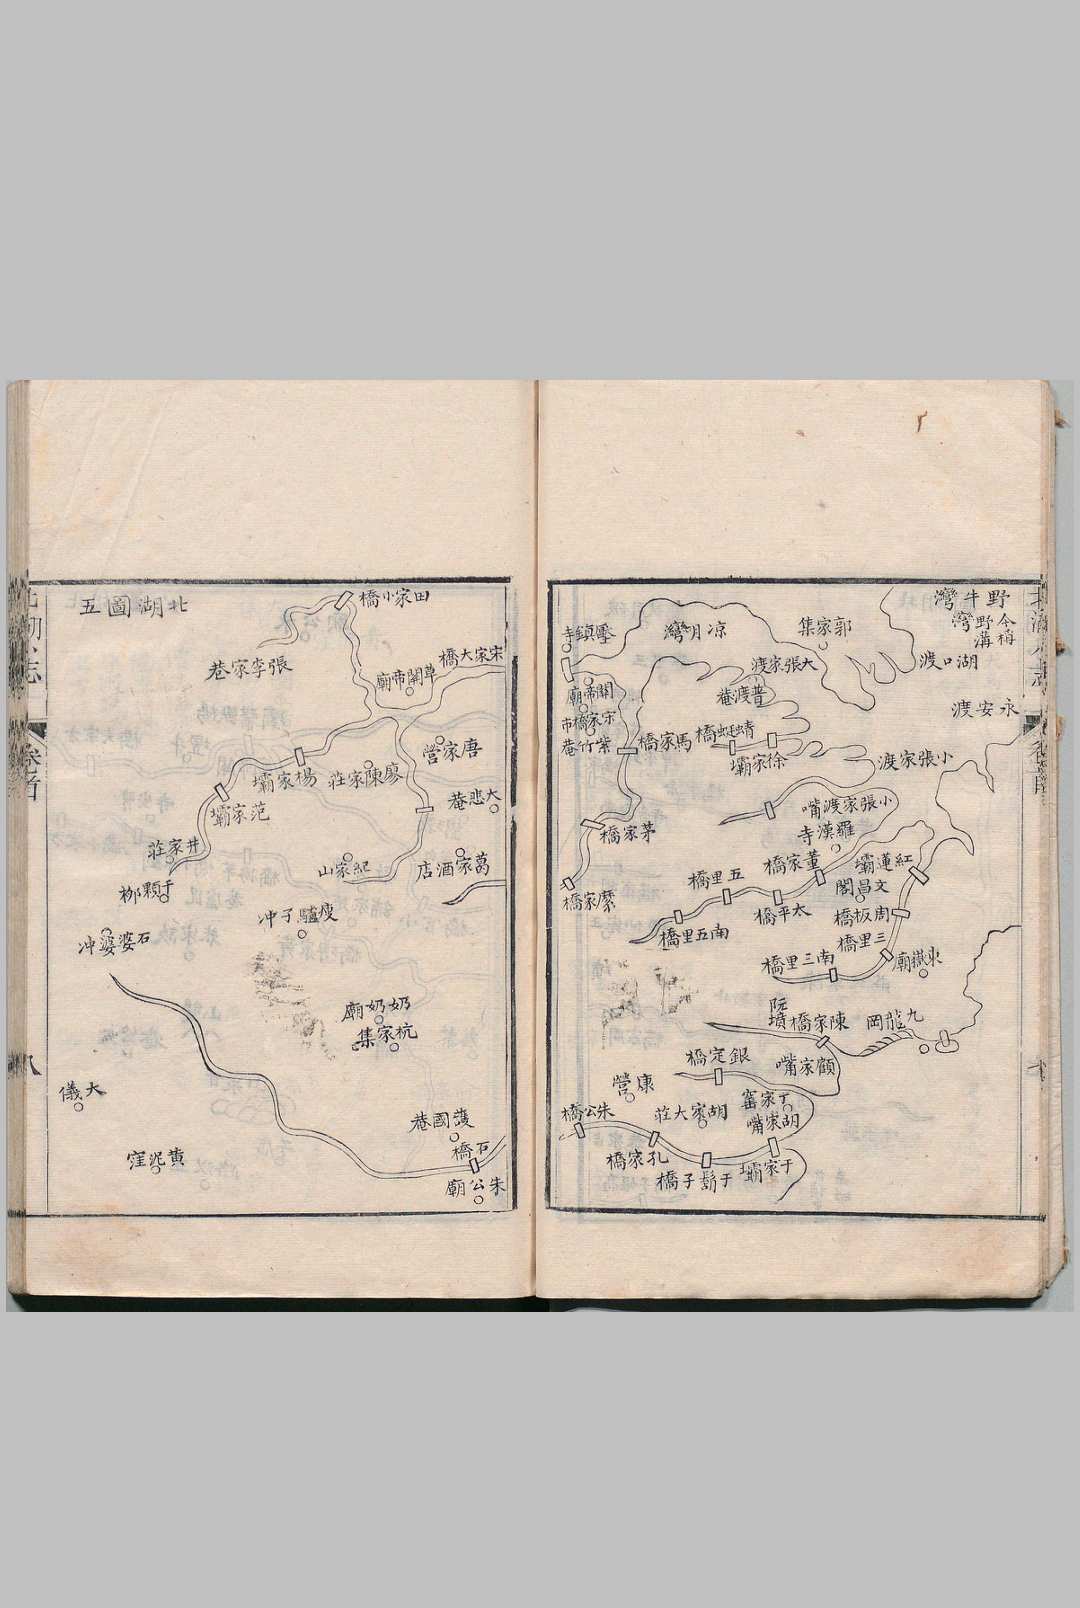 野牛灣
今稱
野溝
灣
湖口渡
永安渡
郭家集
凉月灣
壓鎮寺
大張家渡
普渡菴
關帝廟
宋家橋市
紫竹菴
馬家橋
蜻蜓橋
徐家壩
小張家渡
小張家渡嘴
羅漢寺
茅家橋
董家橋
紅蓮壩
文昌閣
五里橋
太平橋
周板橋
縻家橋
南五里橋
三里橋
南三里橋
東嶽廟
阮墳
陳家橋
九龍岡
銀定橋
顧家嘴
康營
丁家窰
朱公橋
胡家大莊
胡家嘴
孔家橋
于鬍子橋
于家壩
北湖圖五
田家小橋
宋家大橋
張李家巷
草關帝廟
唐家營
楊家壩
廖陳家莊
范家壩
大悲菴
井家莊
紀家山
葛家酒店
于顆柳
瘦驢子冲
石婆婆冲
奶奶廟
杭家集
大儀
護國菴
石橋
黄泥窪
朱公廟
卷首
八